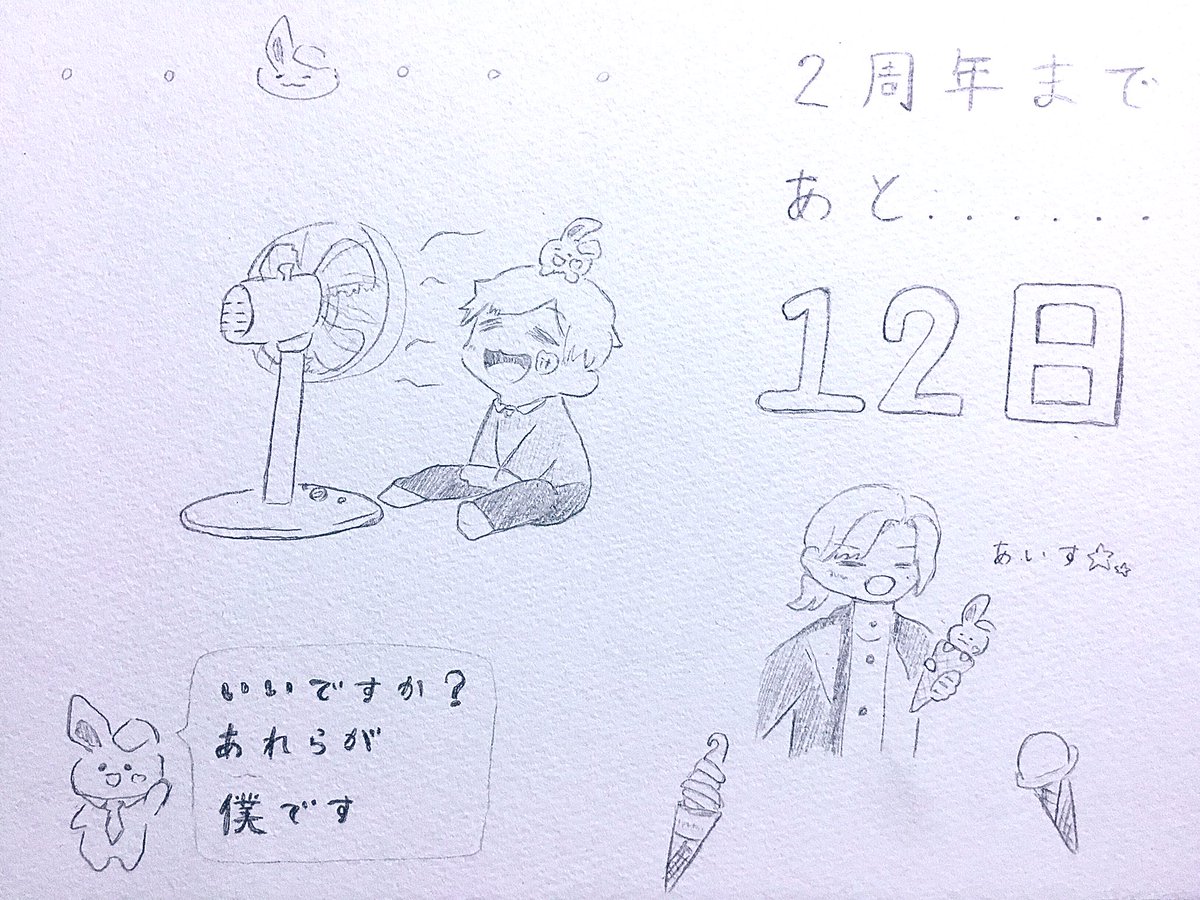 2周年まで
あと.......
12日
あいす☆☆
いいですか?
あれらが
僕です